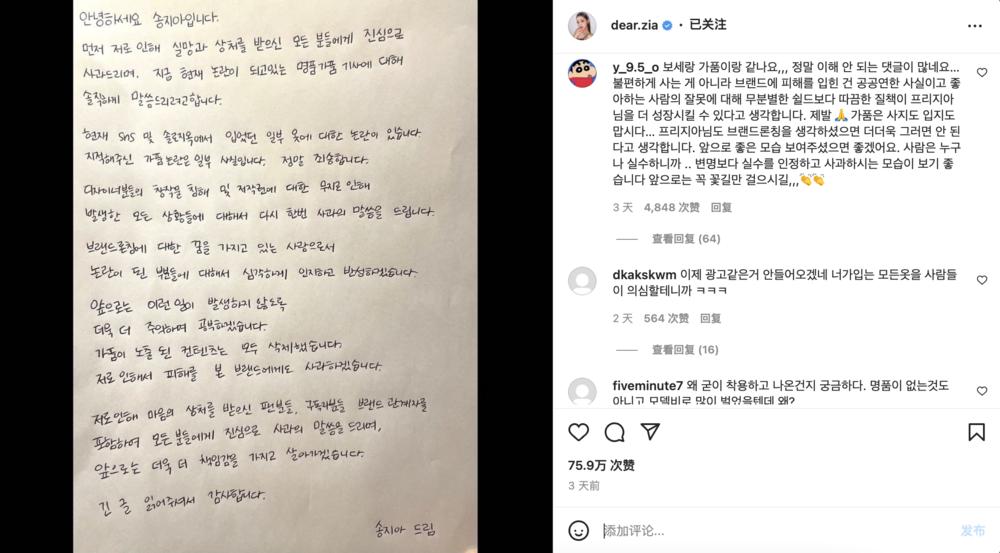 안녕하세요 송지아입니다.
먼저 저로 인해 실망과 상처를 받으신 모든 분들에게 진심으로
사과드리며, 지금 현재 논란이 되고있는 명품가품 기사에 대해
솔직하게 말씀드리려고합니다.
현재 sns 및 솔로지옥에서 입었던 일부 옷에 대한 논란이 있습니다
지적해주신 가품논란은 일부 사실입니다. 정말 죄송합니다.
디자이너분들의 창작물 침해 및 저작권에 대한 무지로 인해
발생한 모든 상황들에 대해서 다시 한번 사과의 말씀을 드립니다.
브랜드론칭에 대한 꿈을 가지고 있는 사람으로서
논란이 된 부분들에 대해서 심각하게 인지하고 반성하겠습니다.
앞으로는 이런 일이 발생하지 않도록
더욱 더 주의하며 공부하겠습니다.
가품이 노출 된 컨텐츠는 모두 삭제했습니다.
저로 인해서 피해를 본 브랜드에게도 사과하겠습니다.
저로인해 마음의 상처를 받으신 팬분들, 구독자분들 브랜드 관계자를
포함하여 모든 분들에게 진심으로 사과의 말씀을 드리며,
앞으로는 더욱 더 책임감을 가지고 살아가겠습니다.
긴 글 읽어주셔서 감사합니다.
송지아 드림
dear.zia • 已关注
y_9.5_o 보세랑 가품이랑 같나요,,, 정말 이해 안 되는 댓글이 많네요...
불편하게 사는 게 아니라 브랜드에 피해를 입힌 건 공공연한 사실이고 좋
아하는 사람의 잘못에 대해 무분별한 쉴드보다 따끔한 질책이 프리지아
님을 더 성장시킬 수 있다고 생각합니다. 제발 🙏 가품은 사지도 입지도
맙시다... 프리지아님도 브랜드론칭을 생각하셨으면 더더욱 그러면 안 된
다고 생각합니다. 앞으로 좋은 모습 보여주셨으면 좋겠어요. 사람은 누구
나 실수하니까 .. 변명보다 실수를 인정하고 사과하시는 모습이 보기 좋
습니다 앞으로는 꼭 꽃길만 걸으시길,,,👏👏
3 天 4,848 次赞 回复
查看回复 (64)
dkakskwm 이제 광고같은거 안들어오겠네 너가입는 모든옷을 사람들
이 의심할테니까 ㅋㅋㅋ
2 天 564 次赞 回复
查看回复 (16)
fiveminute7 왜 굳이 착용하고 나온건지 궁금하다. 명품이 없는것도
아니고 모델비로 많이 벌었을텐데 왜?
75.9万 次赞
3 天前
添加评论...
发布